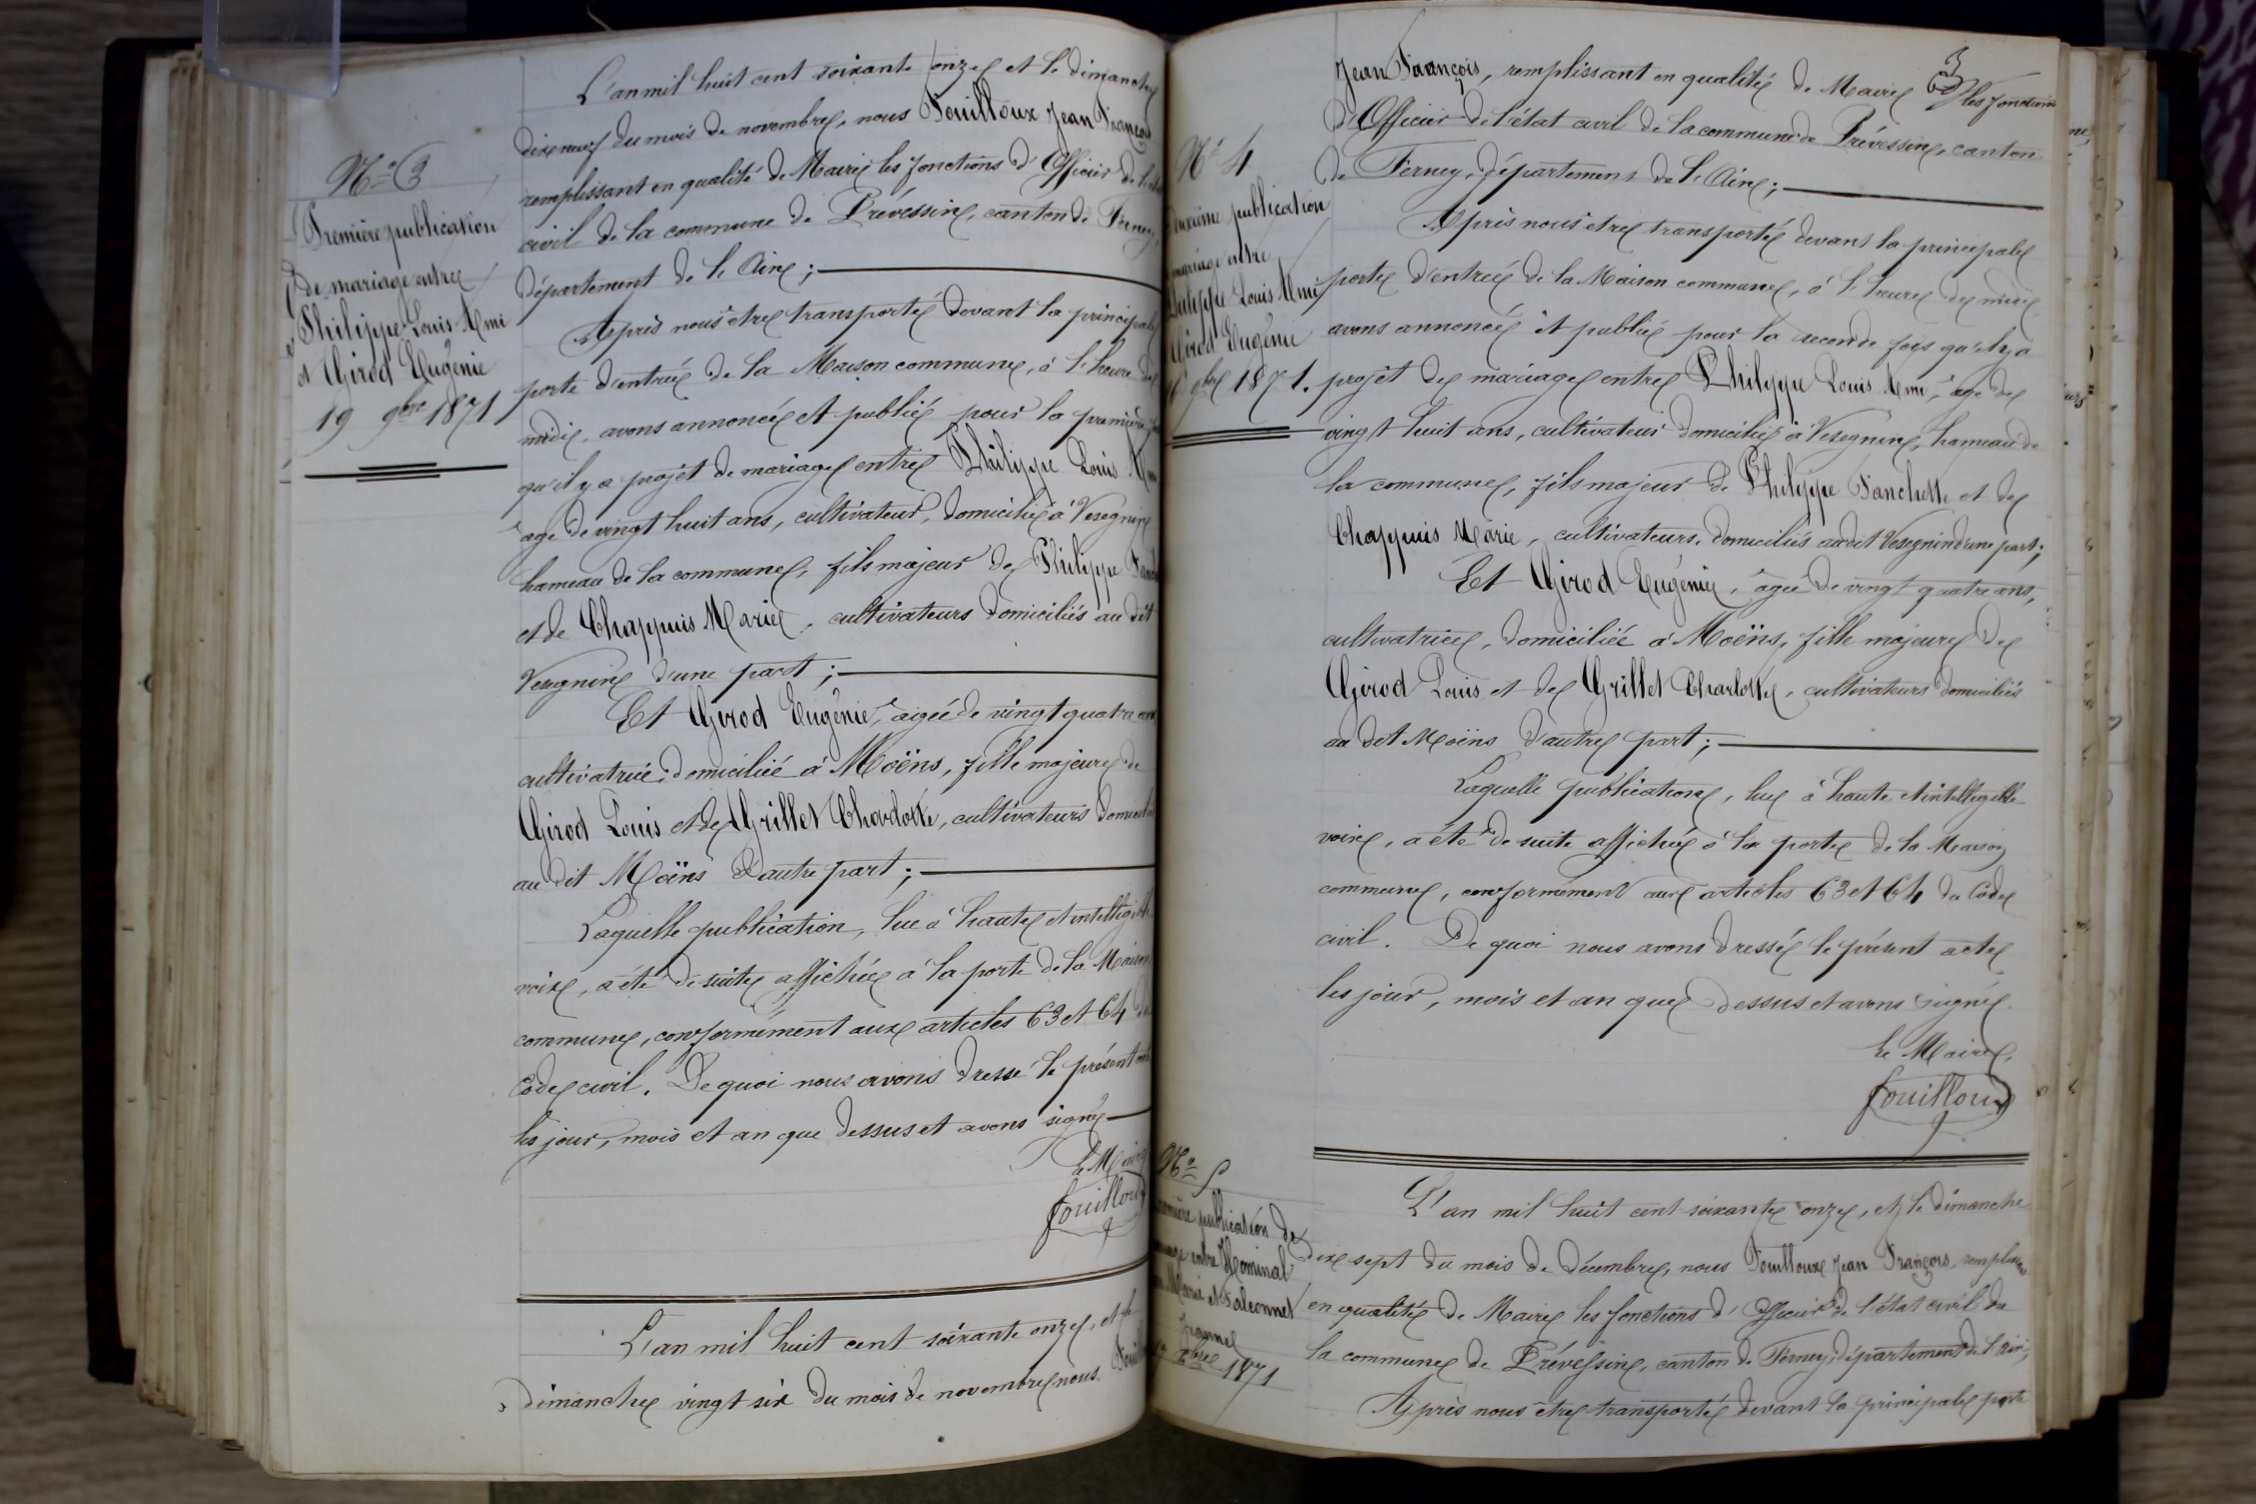 N° 3
Première publication
de mariage entre
Philippe Louis Ami
et Girod Eugénie
19 9bre 1871
L'an mil huit cent soixante onze et le dimanche
dix neuf du mois de novembre, nous Fouilloux Jean François
remplissant en qualité de Maire les fonctions d'Officier de l'état
civil de la commune de Prévessin, canton de Ferney,
département de l'Ain;
Après nous être transporté devant la principale
porte d'entrée de la Maison commune, à l'heure de
midi, avons annoncé et publié pour la première
qu'il y a projet de mariage entre Philippe Louis Ami
âgé de vingt huit ans, cultivateur, domicilié à Vesegnin
hameau de la commune, fils majeur de Philippe
et de Chappuis Marie, cultivateurs domiciliés au dit
Vesegnin d'une part;
Et Girod Eugénie, âgée de vingt quatre ans
cultivatrice, domiciliée à Moëns, fille majeure de
Girod Louis et de Grillet Charlotte, cultivateurs domiciliés
au dit Moëns d'autre part;
Laquelle publication, lue à haute et intelligible
voix, a été de suite affichée à la porte de la Maison
commune, conformément aux articles 63 et 64 du
Code civil. De quoi nous avons dressé le présent acte
les jour, mois et an que dessus et avons signé
Le Maire
Fouilloux
L'an mil huit cent soixante onze, et le
dimanche vingt six du mois de novembre nous Fouilloux
3
Jean François, remplissant en qualité de Maire les fonctions
d'Officier de l'état civil de la commune de Prévessin, canton
de Ferney, département de l'Ain;
N° 4
Deuxième publication
mariage entre
Philippe Louis Ami
Girod Eugénie
9bre 1871.
Après nous être transporté devant la principale
porte d'entrée de la Maison commune, à l'heure de midi
avons annoncé et publié pour la seconde fois qu'il y a
projet de mariage entre Philippe Louis Ami, âgé de
vingt huit ans, cultivateur domicilié à Vesegnin, hameau de
la commune, fils majeur de Philippe Fanchette et de
Chappuis Marie, cultivateurs, domiciliés au dit Vesegnin d'une part;
Et Girod Eugénie, âgée de vingt quatre ans,
cultivatrice, domiciliée à Moëns, fille majeure de
Girod Louis et de Grillet Charlotte, cultivateurs domiciliés
au dit Moëns d'autre part;
Laquelle publication, lue à haute et intelligible
voix, a été de suite affichée à la porte de la Maison
commune, conformément aux articles 63 et 64 du Code
civil. De quoi nous avons dressé le présent acte
les jour, mois et an que dessus et avons signé.
Le Maire,
Fouilloux
N° 5
première publication de
mariage entre Nominal
Marie et Falconnet
17 Xbre 1871
L'an mil huit cent soixante onze, et le dimanche
dix sept du mois de Décembre, nous Fouilloux Jean François remplissant
en qualité de Maire les fonctions d'Officier de l'état civil de
la commune de Prévessin, canton de Ferney, département de l'Ain;
Après nous être transporté devant la principale porte